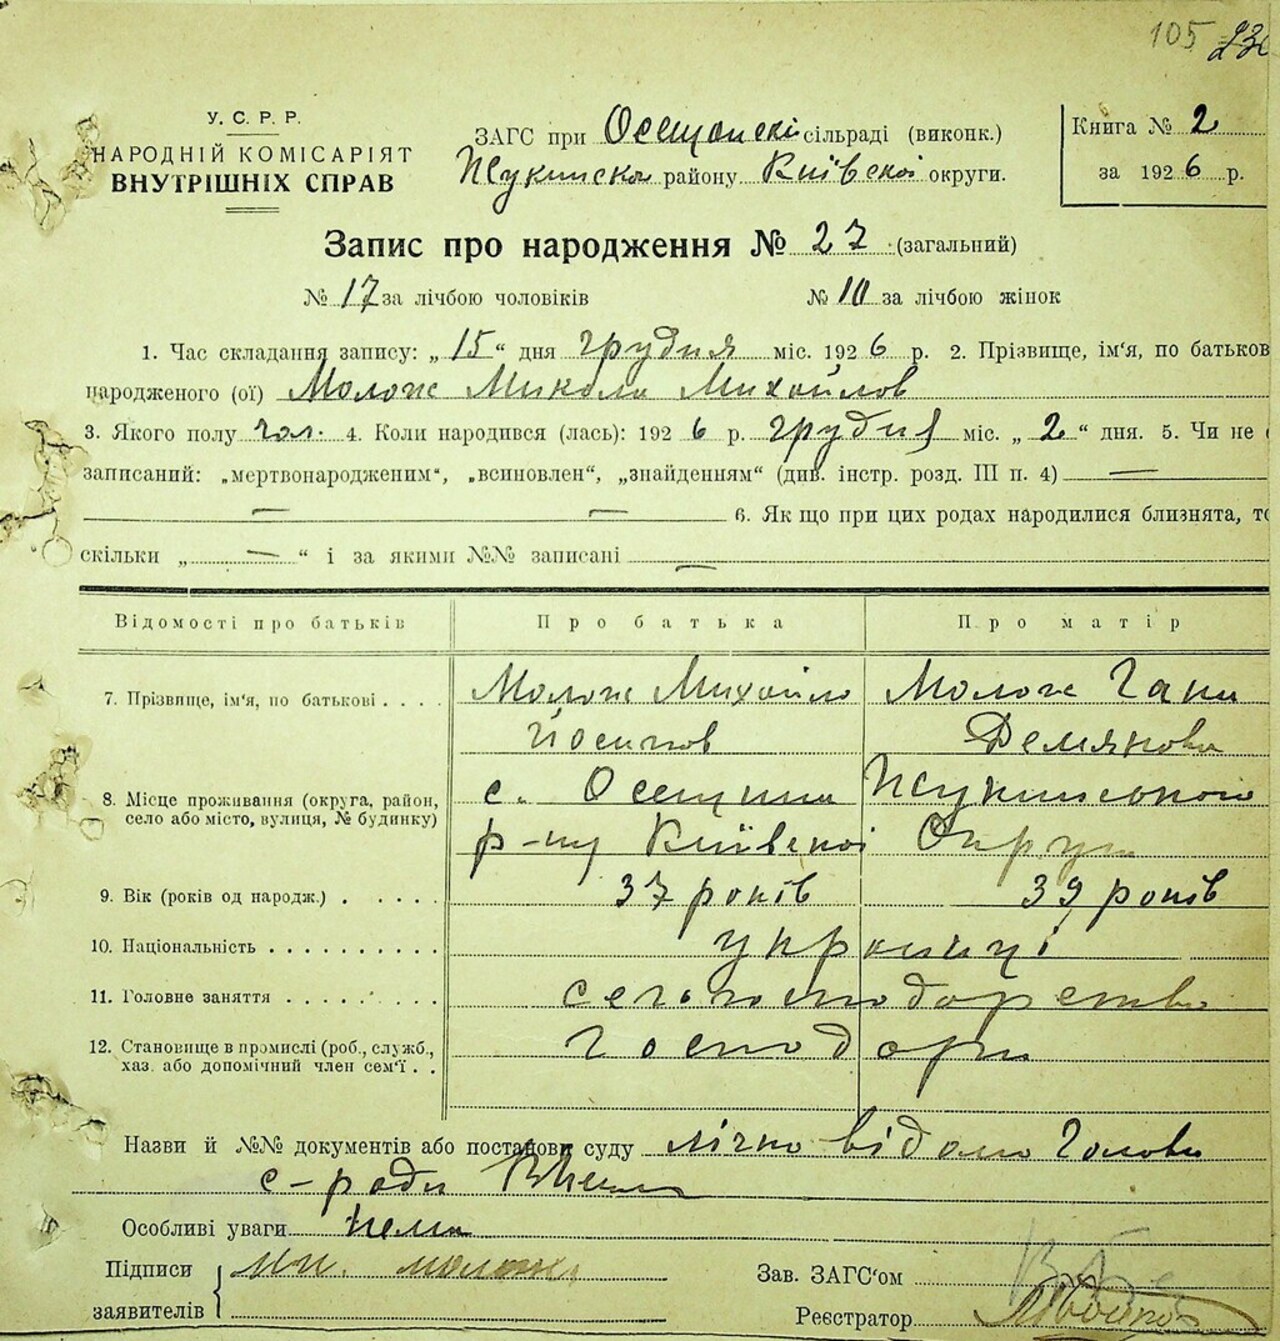 105 23
У. С. Р. Р.
НАРОДНІЙ КОМІСАРІЯТ
ВНУТРІШНІХ СПРАВ
ЗАГС при Осещанскі сільраді (виконк.)
Жукинскоі району Київскоі округи.
Книга № 2
за 1926 р.
Запис про народження № 27 (загальний)
№ 17 за лічбою чоловіків № 10 за лічбою жінок
1. Час складання запису: „15“ дня грудня міс. 1926 р. 2. Прізвище, ім'я, по батьков
народженого (ої) Молож Микола Михайлов
3. Якого полу чол. 4. Коли народився (лась): 1926 р. грудня міс. „2“ дня. 5. Чи не
записаний: „мертвонародженим“, „всиновлен“, „знайденням“ (див. інстр. розд. III п. 4) —
— — 6. Як що при цих родах народилися близнята, то
скільки „—“ і за якими №№ записані —
Відомості про батьків Про батька Про матір
7. Прізвище, ім'я, по батькові . . . . Молож Михайло Молож Гана
Йосипов Демянова
8. Місце проживання (округа, район, с. Осещина Жукинского
село або місто, вулиця, № будинку) р-ну Київскоі Округи
9. Вік (років од народж.) . . . . . . 37 років 39 років
10. Національність . . . . . . . . . . українці
11. Головне заняття . . . . . . . . . сельгосподарство
12. Становище в промислі (роб., служб., господарі
хаз. або допомічний член сем'ї . .
Назви й №№ документів або постанови суду лічно відомо Голови
с-ради
Особливі уваги нема
Підписи Молож
заявителів
Зав. ЗАГС'ом
Реєстратор